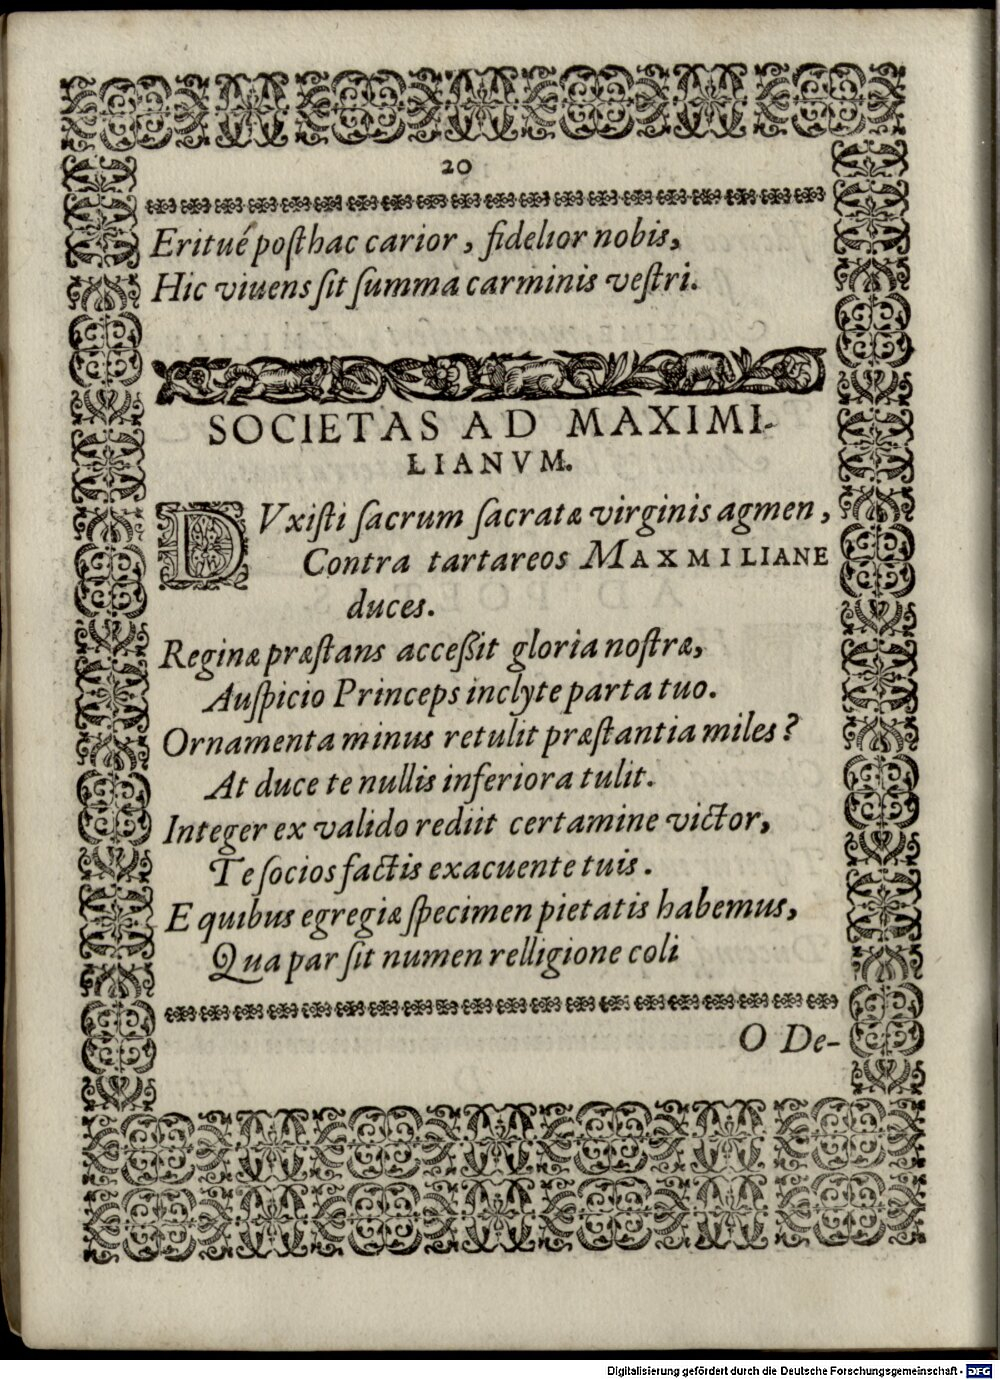 20
Eritué posthac carior, fidelior nobis,
Hic viuens sit summa carminis vestri.
SOCIETAS AD MAXIMI-
LIANVM.
DVxisti sacrum sacratæ virginis agmen,
Contra tartareos MAXMILIANE
duces.
Reginæ præstans acceßit gloria nostræ,
Auspicio Princeps inclyte parta tuo.
Ornamenta minus retulit præstantia miles?
At duce te nullis inferiora tulit.
Integer ex valido rediit certamine victor,
Te socios factis exacuente tuis.
E quibus egregiæ specimen pietatis habemus,
Qua par sit numen relligione coli
O De-
Digitalisierung gefördert durch die Deutsche Forschungsgemeinschaft - DFG